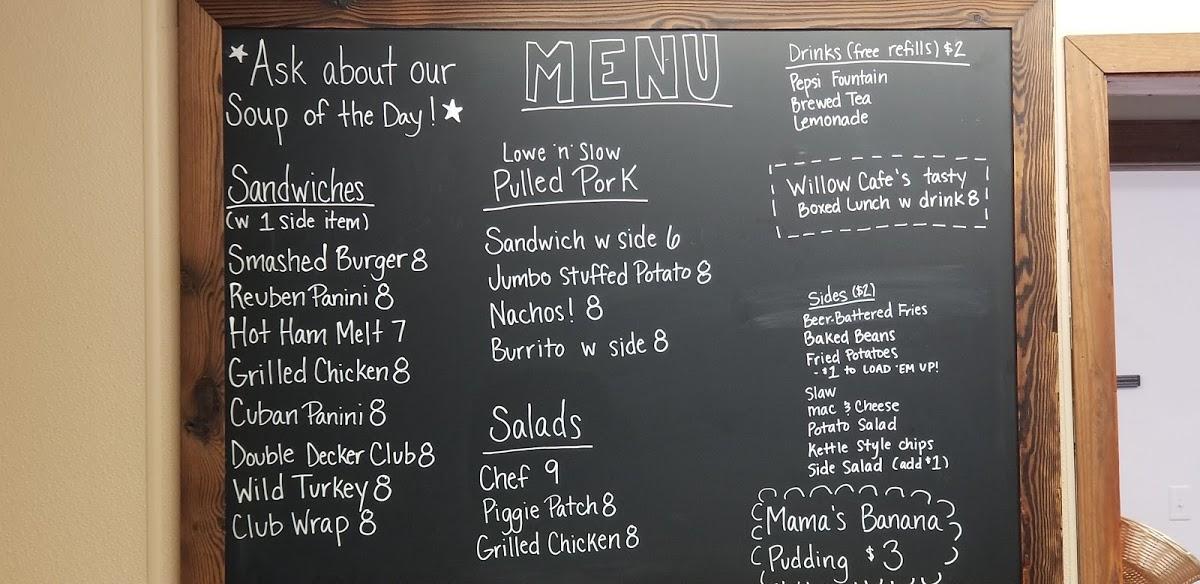 *Ask about our
Soup of the Day!★
Sandwiches
(w 1 side item)
Smashed Burger 8
Reuben Panini 8
Hot Ham Melt 7
Grilled Chicken 8
Cuban Panini 8
Double Decker Club 8
Wild Turkey 8
Club Wrap 8
MENU
Lowe 'n' Slow
Pulled Pork
Sandwich w side 6
Jumbo Stuffed Potato 8
Nachos! 8
Burrito w side 8
Salads
Chef 9
Piggie Patch 8
Grilled Chicken 8
Drinks (free refills) $2
Pepsi Fountain
Brewed Tea
Lemonade
Willow Cafe's tasty
Boxed Lunch w drink 8
Sides ($2)
Beer-Battered Fries
Baked Beans
Fried Potatoes
-$1 to LOAD 'EM UP!
Slaw
mac & Cheese
Potato Salad
Kettle Style chips
Side Salad (add $1)
Mama's Banana
Pudding $3